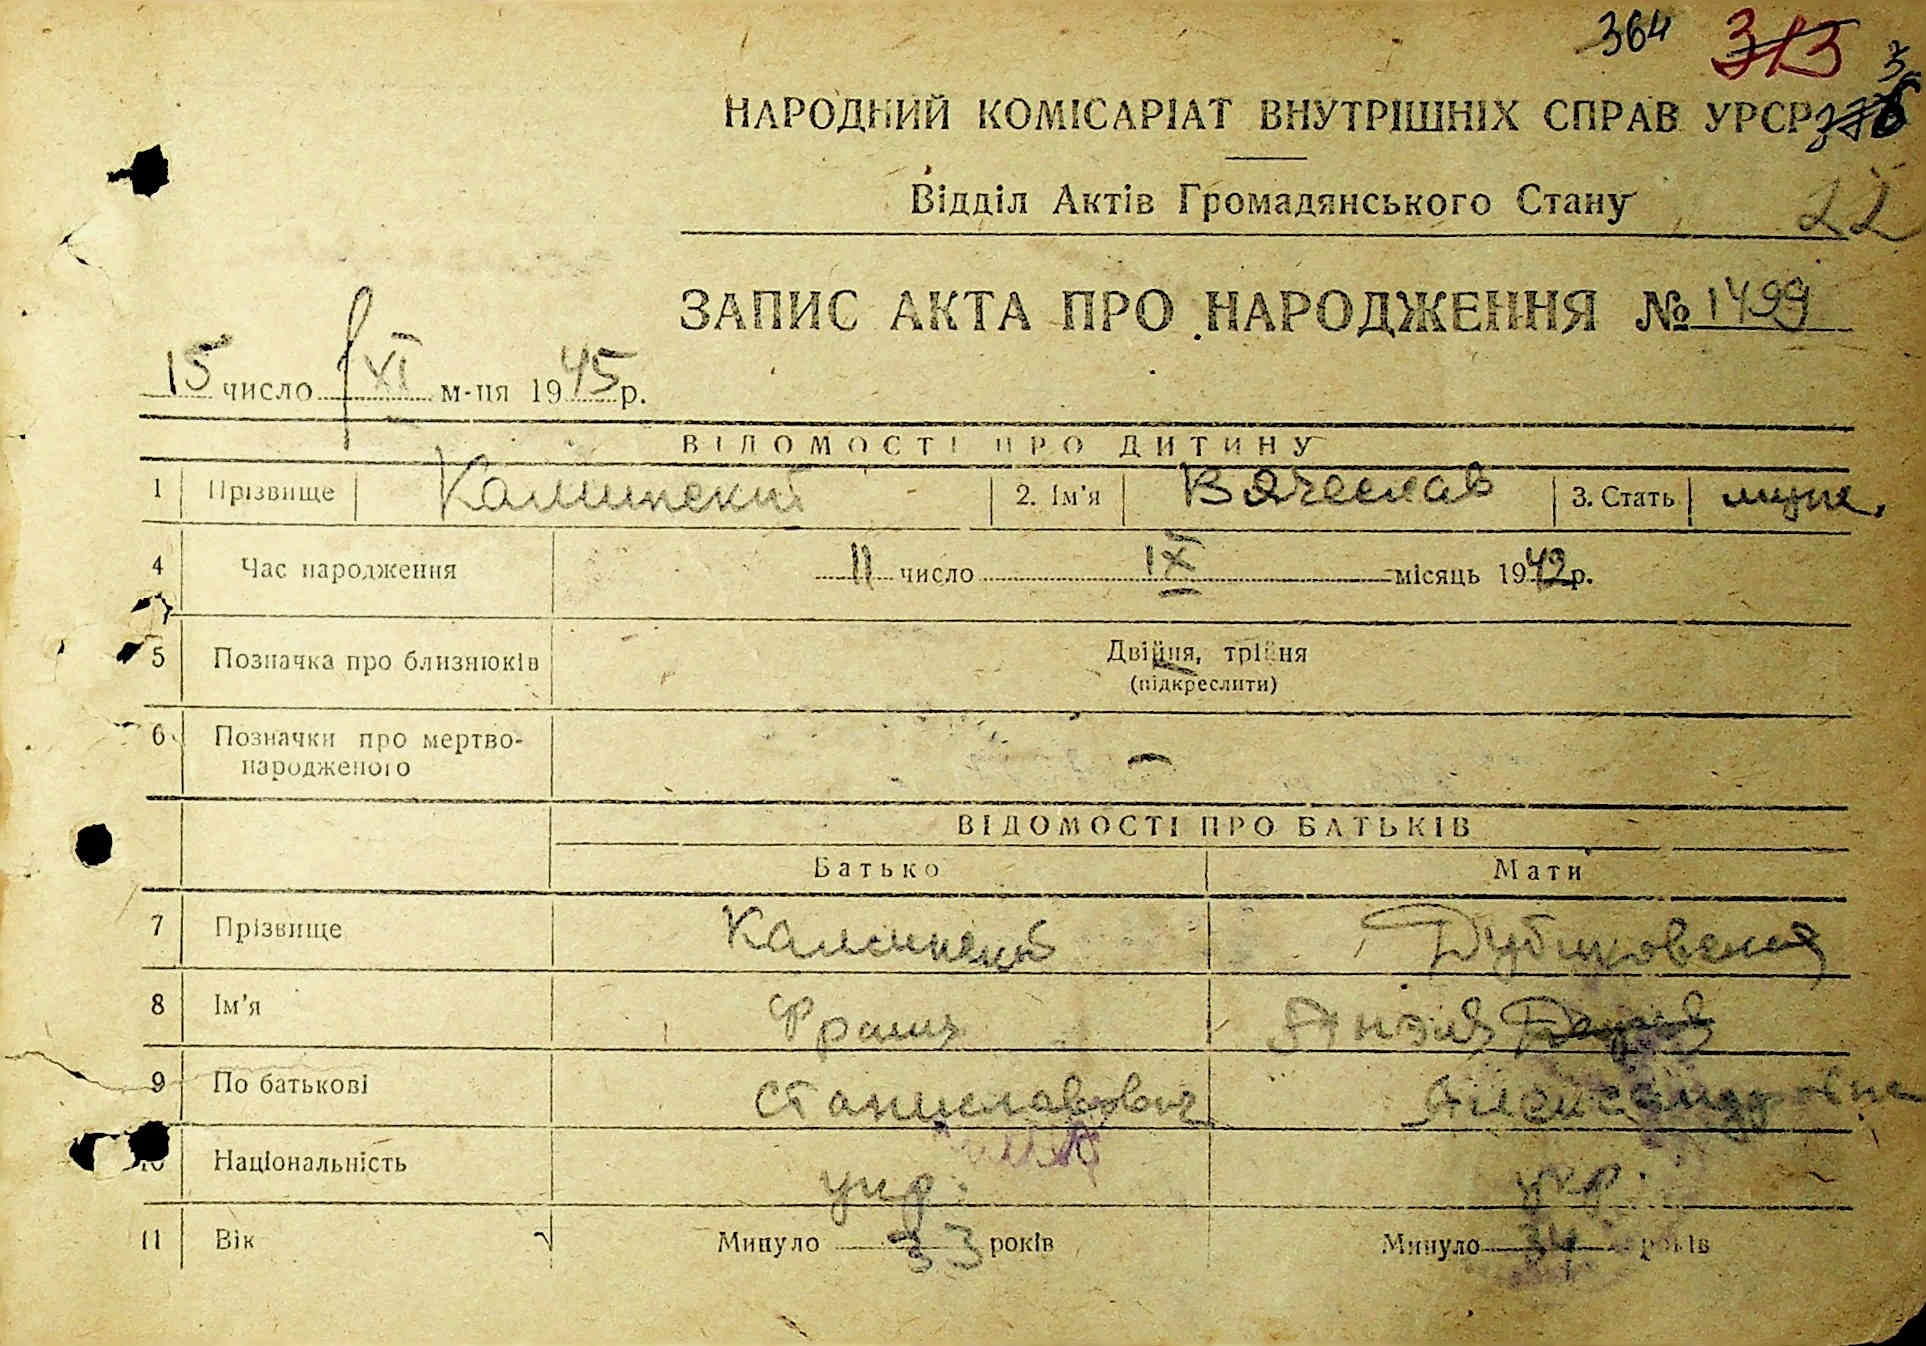 364 313
НАРОДНИЙ КОМІСАРІАТ ВНУТРІШНІХ СПРАВ УРСР
Відділ Актів Громадянського Стану
22
ЗАПИС АКТА ПРО НАРОДЖЕННЯ № 1499
15 число XI м-ця 1945 р.
ВІДОМОСТІ ПРО ДИТИНУ
1 Прізвище Калинский 2. Ім'я Вячеслав 3. Стать муж.
4 Час народження 11 число IX місяць 1942 р.
5 Позначка про близнюків Двійня, трійня
(підкреслити)
6 Позначки про мертво-
народженого —
ВІДОМОСТІ ПРО БАТЬКІВ
Батько Мати
7 Прізвище Калинский
8 Ім'я Франц Анэля
9 По батькові Станиславович Александровна
10 Національність укр. укр.
11 Вік Минуло 33 років Минуло 34 років